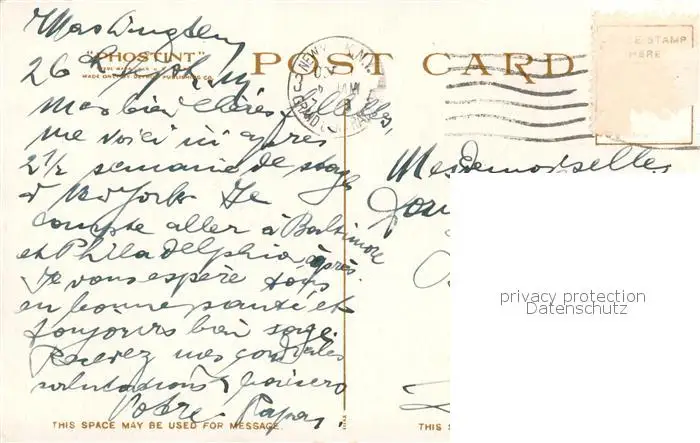 Washington
"PHOSTINT"
MADE ONLY BY DETROIT PUBLISHING CO.
POST CARD
STAMP
HERE
26
Mes bien chères filles,
me voici ici après
2 1/2 semaine de
New York Je
compte aller à Baltimore
et Philadelphia après.
Je vous espère tous
en bonne santé et
toujours bien sage.
Recevez mes cordiales
salutations baisers
Votre Papa,
Mesdemoiselles
privacy protection
Datenschutz
THIS SPACE MAY BE USED FOR MESSAGE.
THIS S